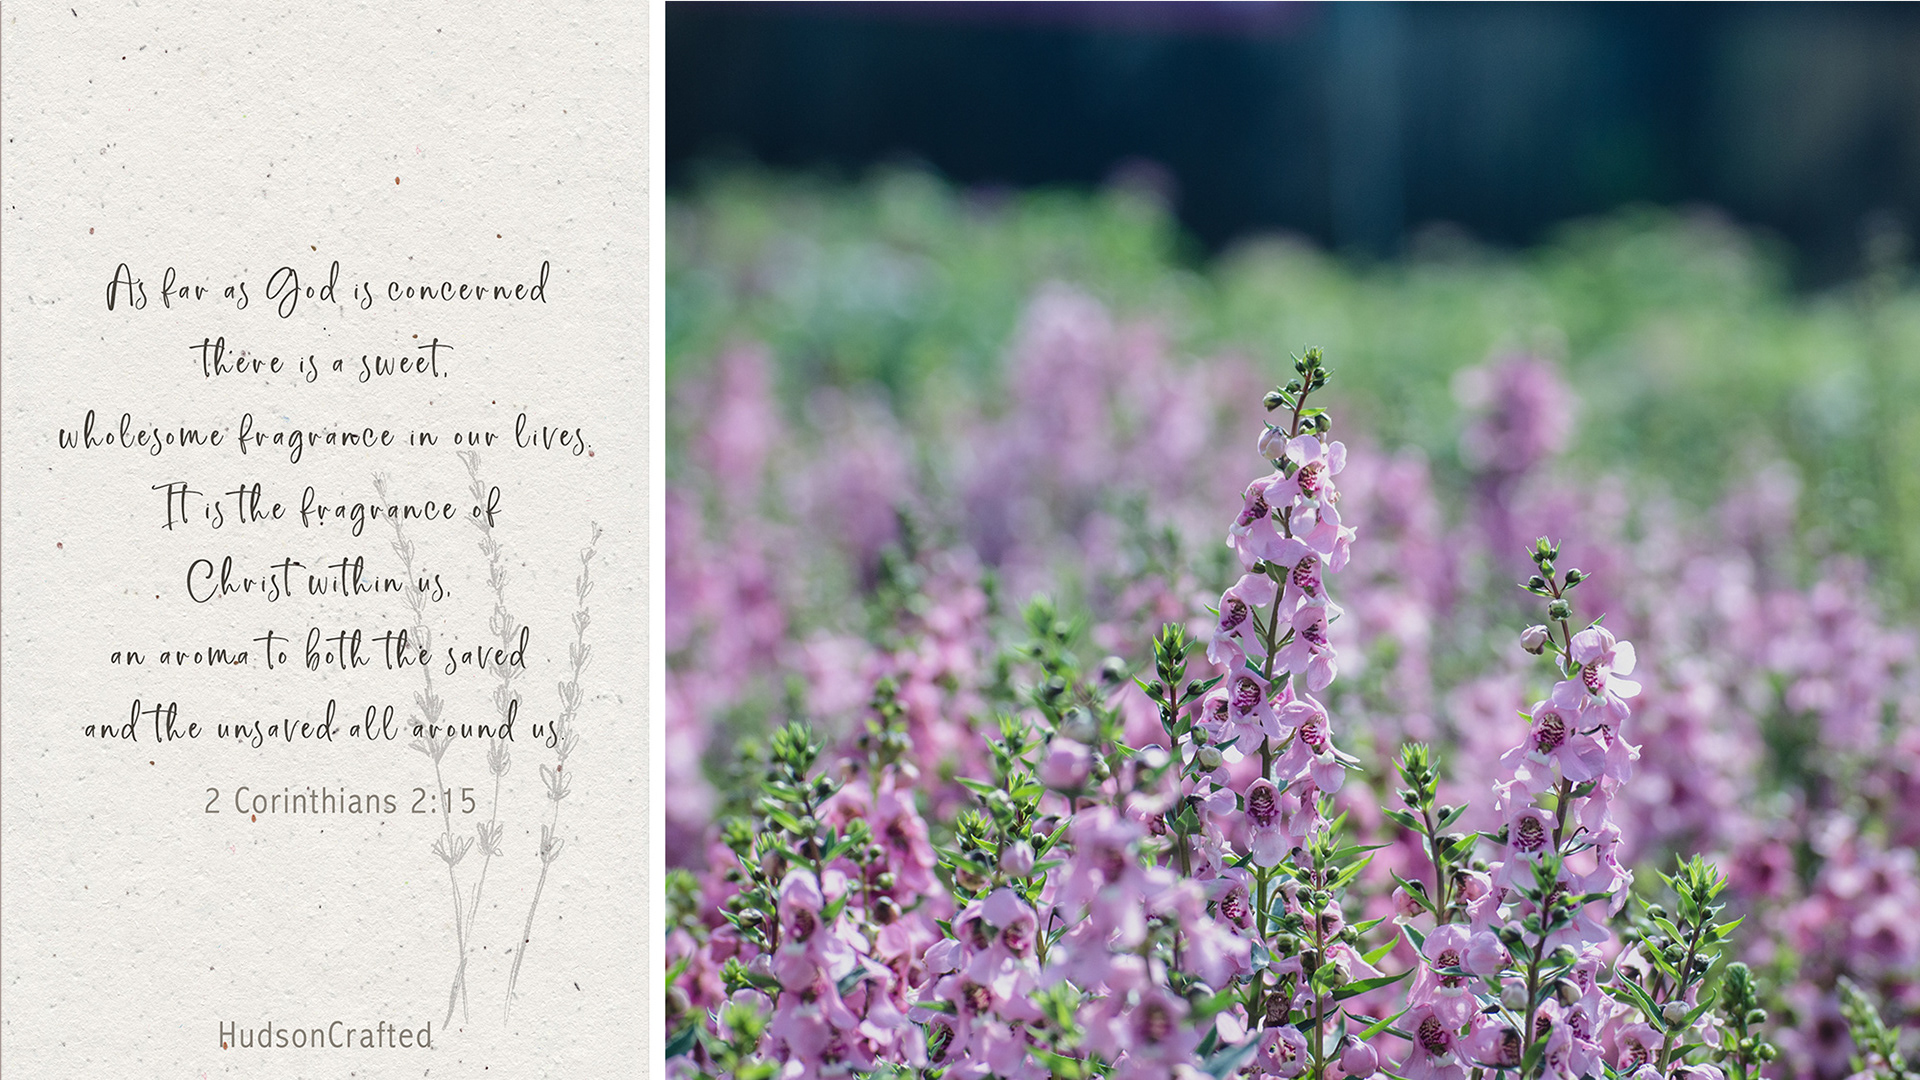 As far as God is concerned
there is a sweet,
wholesome fragrance in our lives.
It is the fragrance of
Christ within us,
an aroma to both the saved
and the unsaved all around us.
2 Corinthians 2:15
HudsonCrafted